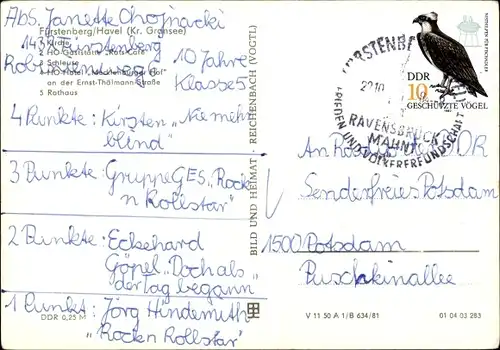 Abs. Janette Chojnacki
Fürstenberg/Havel (Kr. Gransee)
1 Kirche
1432 Fürstenberg
2 HO-Gaststätte „Rats-Café“
10 Jahre
3 Schleuse
4 HO-Hotel „Mecklenburger Hof“
Klasse 5
an der Ernst-Thälmann-Straße
5 Rathaus
4 Punkte: Kirsten „Nie mehr
blind“
3 Punkte: Gruppe GES „Rocke
n Rollstar“
2 Punkte: Eckehard
Göpel „Doch als
der Tag begann“
1 Punkt: Jörg Hindemith
„Rocken Rollstar“
DDR 0,25 M
BILD UND HEIMAT REICHENBACH (VOGTL)
FÜRSTENBE
22.10
RAVENSBRÜCK
MAHNT
FRIEDEN UND VÖLKERFREUNDSCHAFT
DDR
10
GESCHÜTZTE VÖGEL
An DDR
Sender freies Potsdam
1500 Potsdam
Puschkinallee
V 11 50 A 1/B 634/81
01 04 03 283